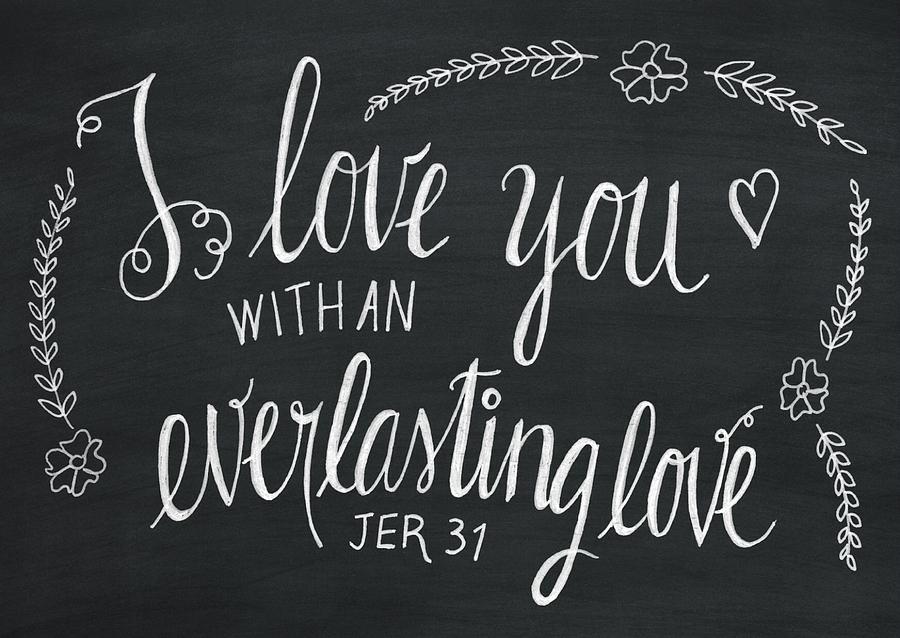 I love you
WITH AN
everlasting love
JER 31